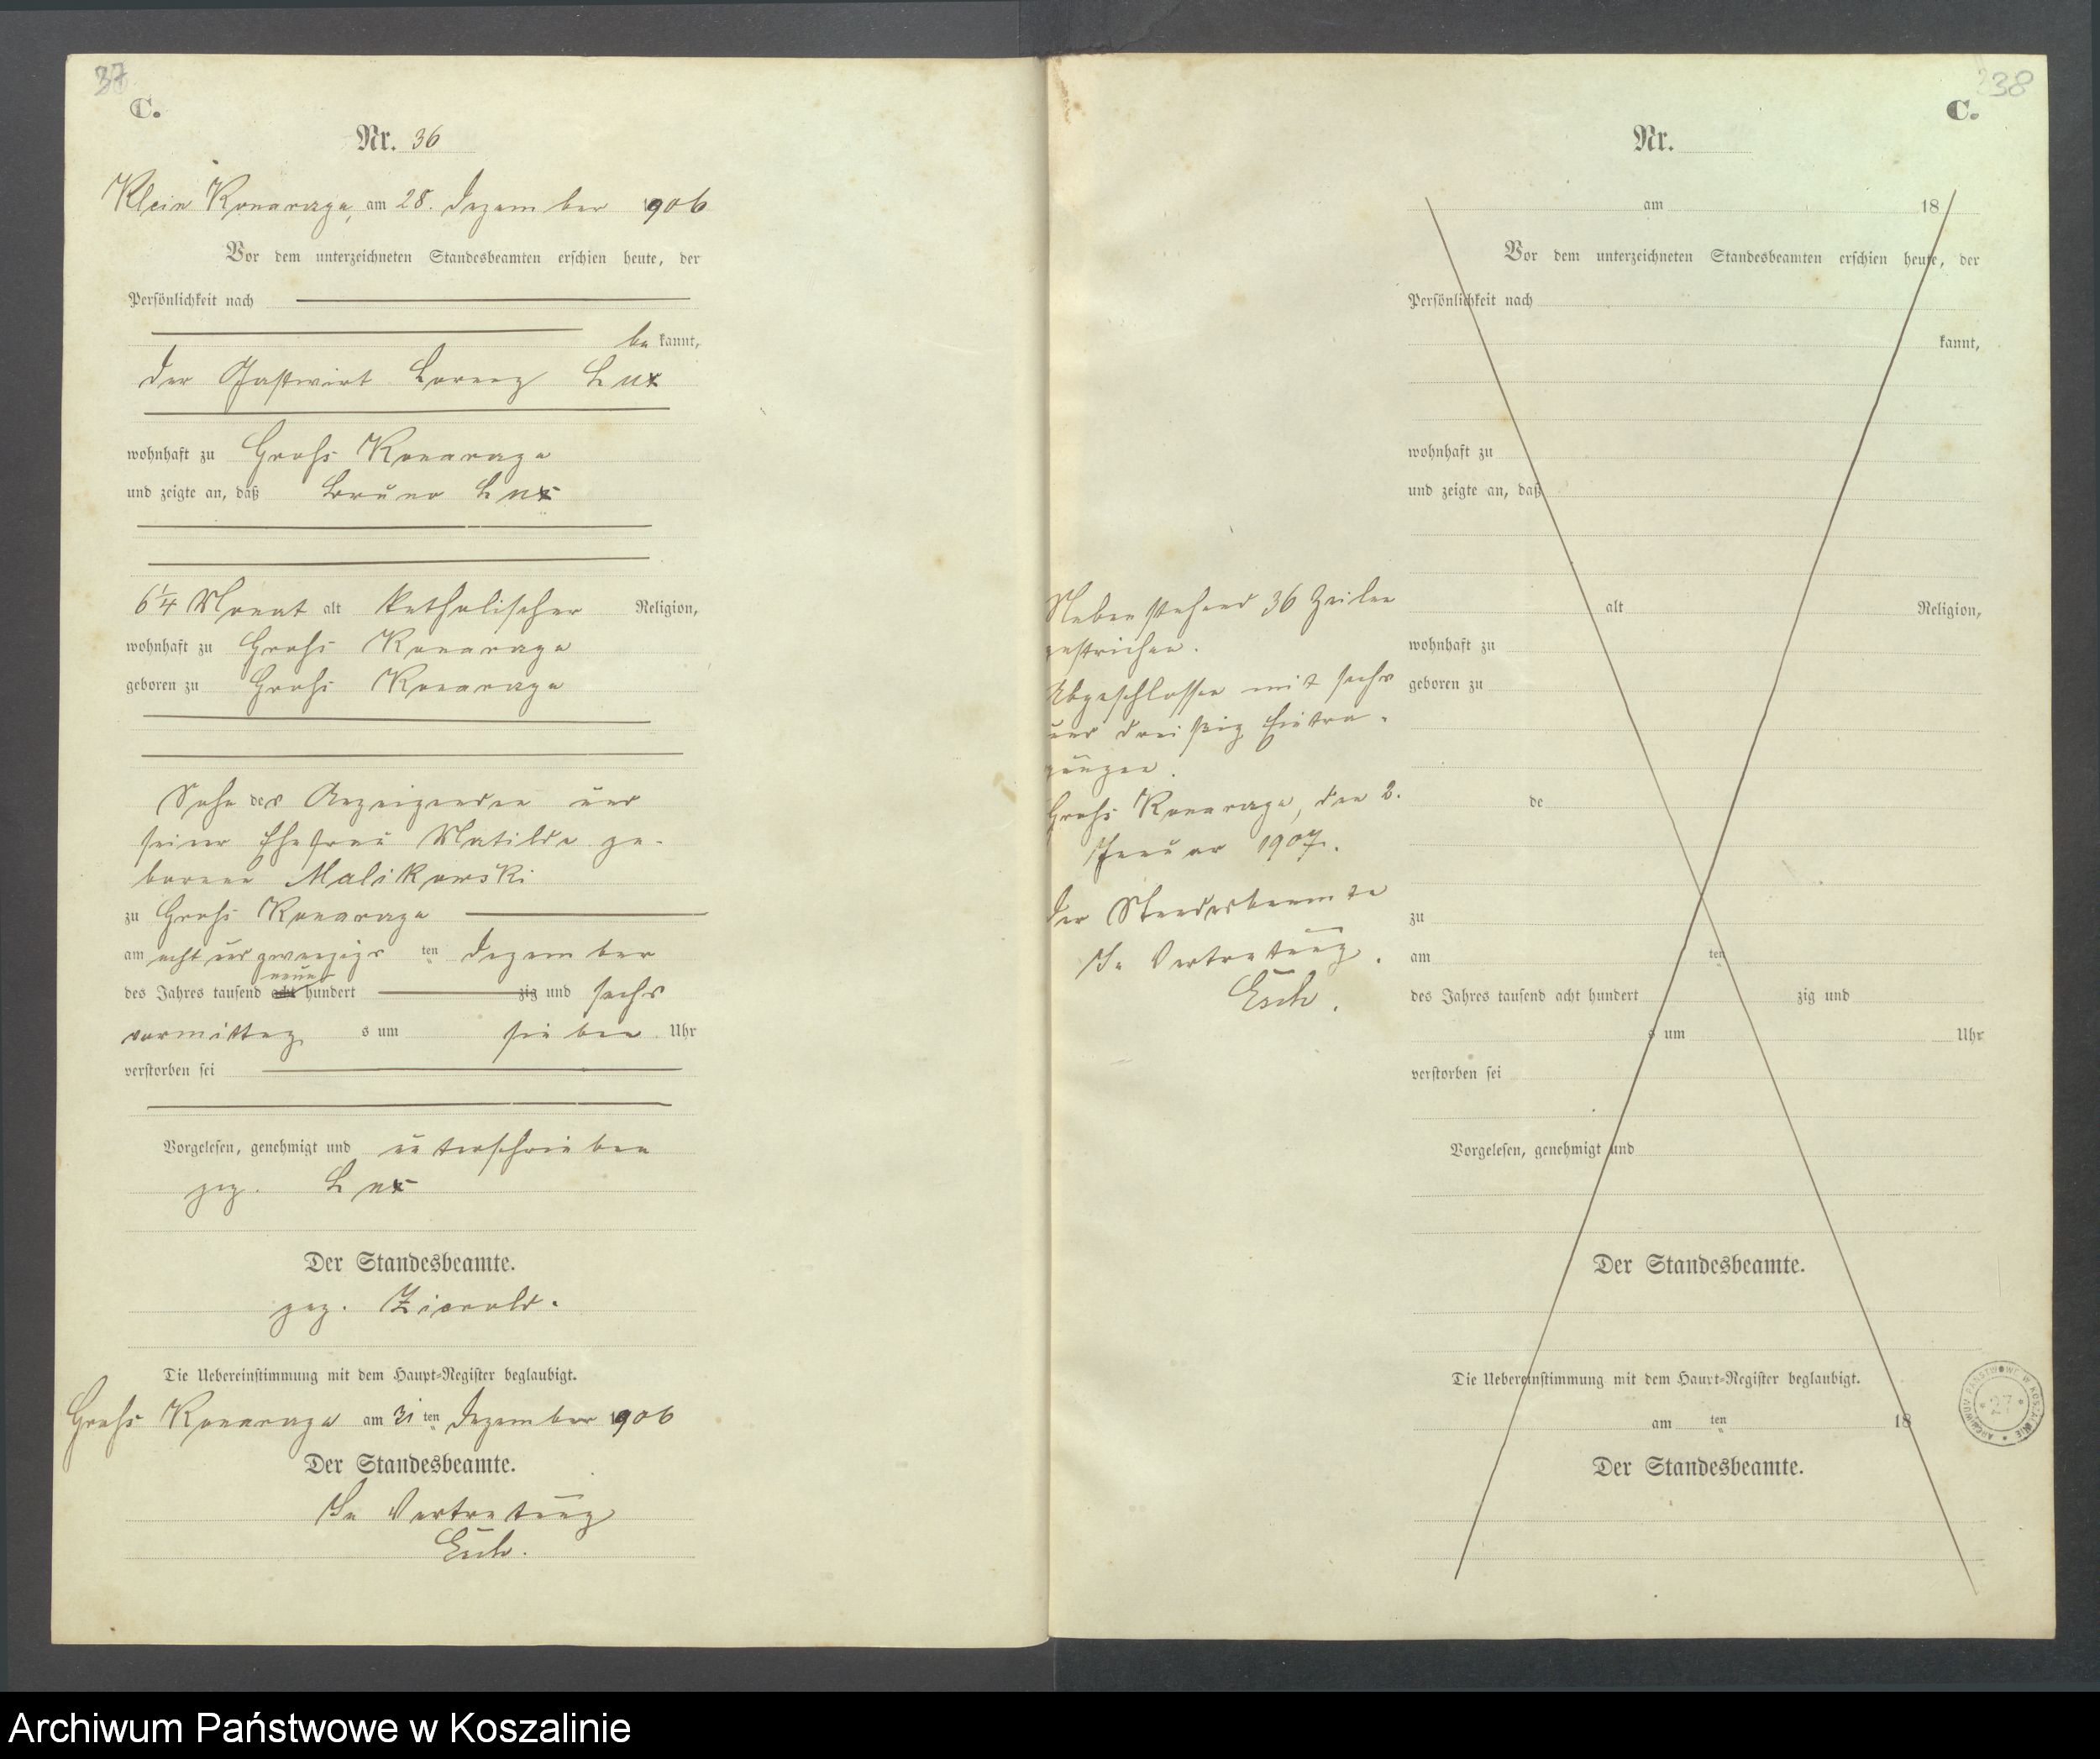 37
C.
Nr. 36
Klein Konarczyn, am 28. Dezember 1906
Vor dem unterzeichneten Standesbeamten erschien heute, der
Persönlichkeit nach
be kannt,
der Gastwirt Lorenz Lux
wohnhaft zu Groß Konarczyn
und zeigte an, daß Bruno Lux
6 1/4 Monat alt katholischer Religion,
wohnhaft zu Groß
geboren zu Groß
Sohn des Anzeigenden und
seiner Ehefrau Matilde ge-
borene Malikowski
zu Groß
am acht und zwanzigs ten Dezember
neun
des Jahres tausend acht hundert zig und sechs
vormittag s um sieben Uhr
verstorben sei
Vorgelesen, genehmigt und unterschrieben
gez. Lux
Der Standesbeamte.
gez.
Die Uebereinstimmung mit dem Haupt-Register beglaubigt.
Groß am 31 ten Dezember 1906
Der Standesbeamte.
In Vertretung
238
C.
Nr.
am 18
Vor dem unterzeichneten Standesbeamten erschien heute, der
Persönlichkeit nach
kannt,
wohnhaft zu
und zeigte an, daß
Nebenstehend 36 Zeilen
gestrichen.
Abgeschlossen mit sechs
und dreißig Eintra-
gungen.
Groß den 2.
Januar 1907.
Der Standesbeamte
In Vertretung.
alt Religion,
wohnhaft zu
geboren zu
de
zu
am ten
des Jahres tausend acht hundert zig und
s um Uhr
verstorben sei
Vorgelesen, genehmigt und
Der Standesbeamte.
Die Uebereinstimmung mit dem Haupt-Register beglaubigt.
am ten 18
Der Standesbeamte.
Archiwum Państwowe w Koszalinie